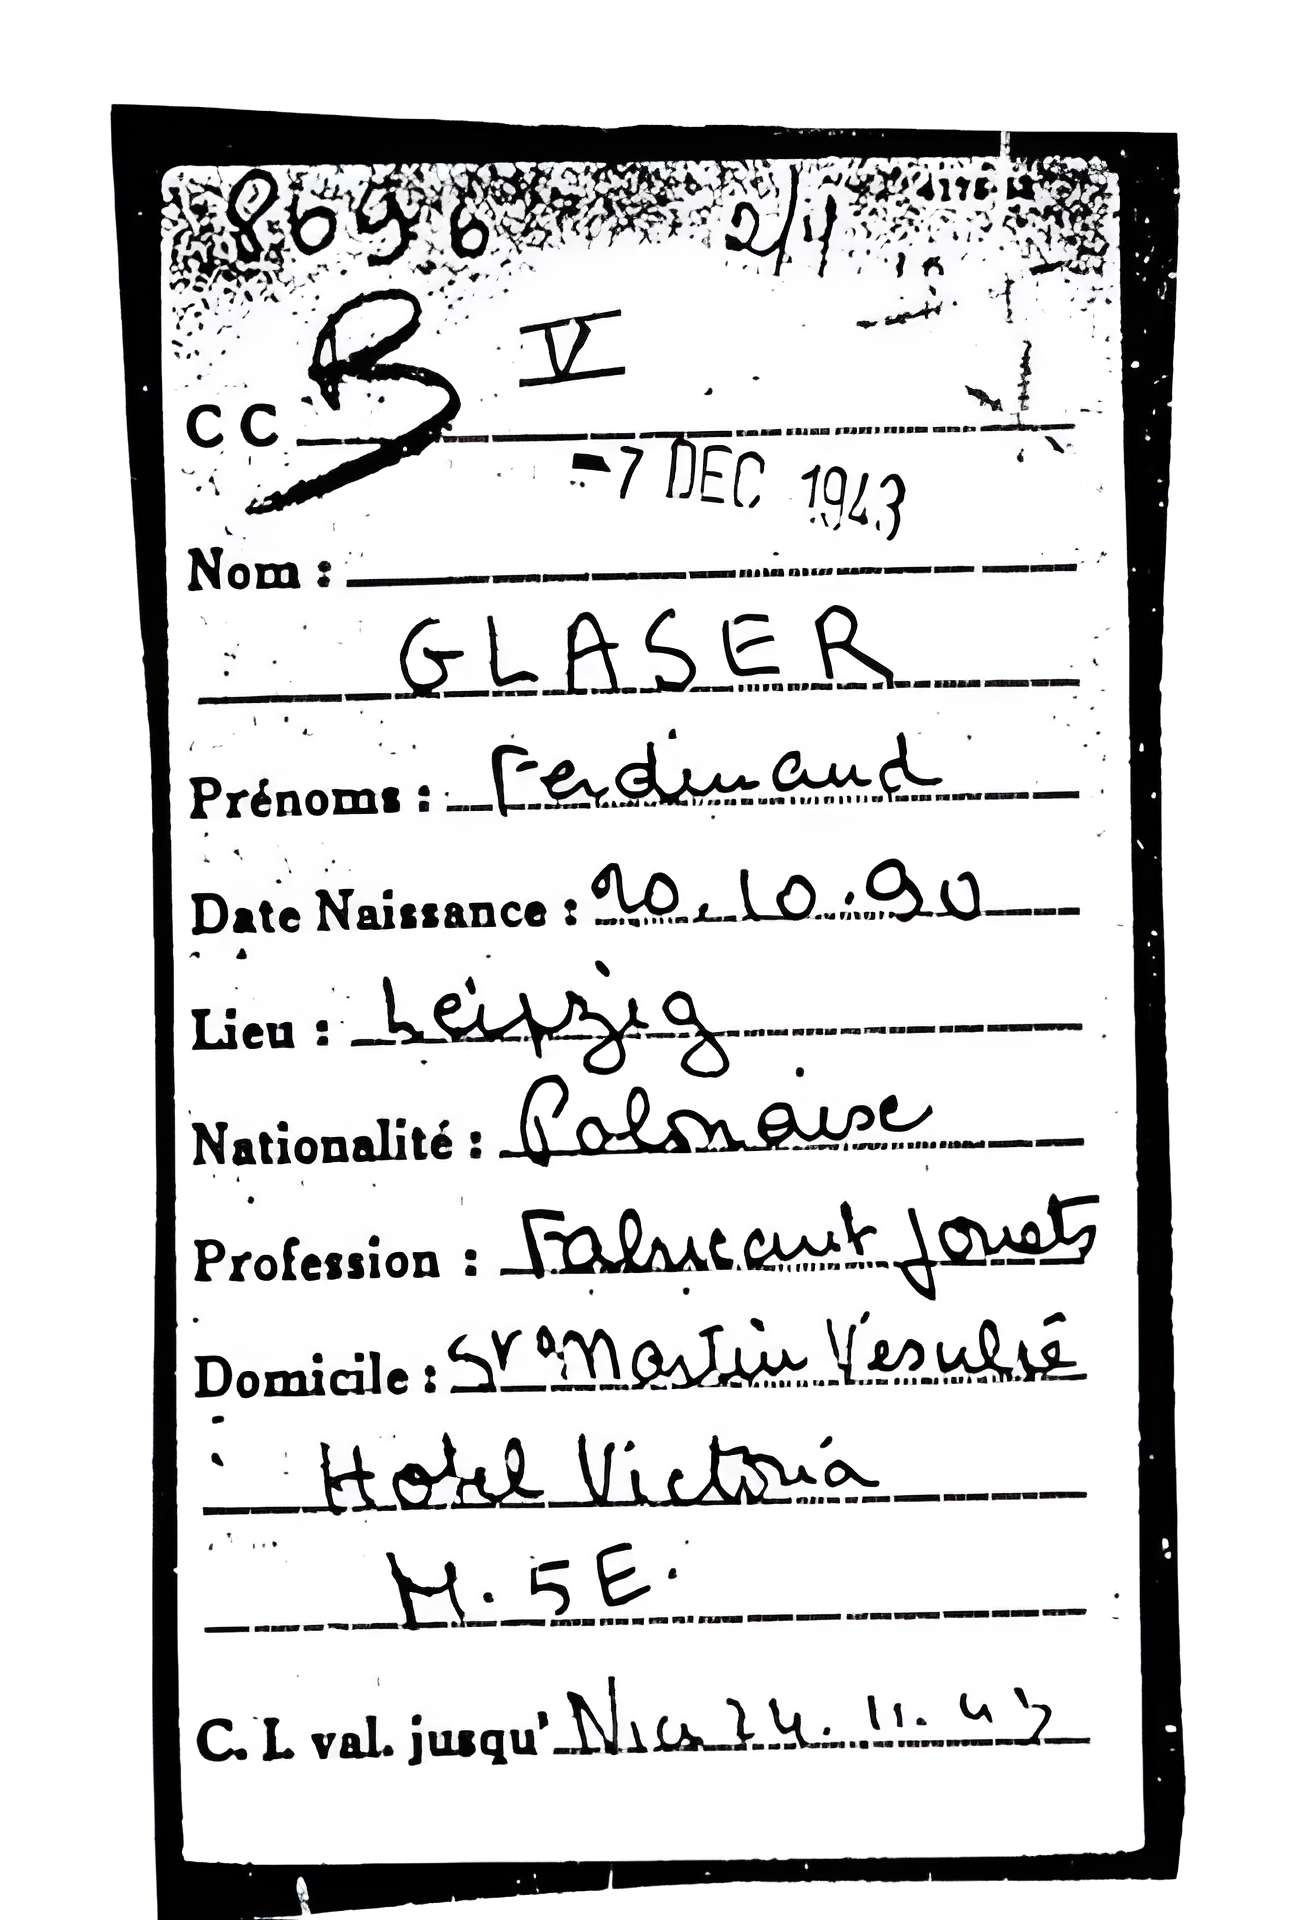 8696 2/1
B V
CC
-7 DEC 1943
Nom :
GLASER
Prénoms : Ferdinand
Date Naissance : 20.10.90
Lieu : Leipzig
Nationalité : Polonaise
Profession : Fabricant Jouets
Domicile : St Martin Vesubie
Hotel Victoria
M. 5 E.
C. I. val. jusqu' Nice 24.11.43